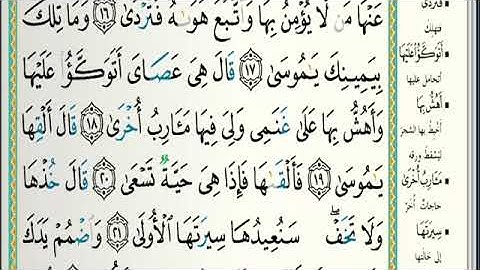 عَنْهَا مَن لَّا يُؤْمِنُ بِهَا وَٱتَّبَعَ هَوَىٰهُ فَتَرْدَىٰ ١٦ وَمَا تِلْكَ
بِيَمِينِكَ يَٰمُوسَىٰ ١٧ قَالَ هِيَ عَصَايَ أَتَوَكَّؤُاْ عَلَيْهَا
وَأَهُشُّ بِهَا عَلَىٰ غَنَمِي وَلِيَ فِيهَا مَـَٔارِبُ أُخْرَىٰ ١٨ قَالَ أَلْقِهَا
يَٰمُوسَىٰ ١٩ فَأَلْقَىٰهَا فَإِذَا هِيَ حَيَّةٌ تَسْعَىٰ ٢٠ قَالَ خُذْهَا
وَلَا تَخَفْ ۖ سَنُعِيدُهَا سِيرَتَهَا ٱلْأُولَىٰ ٢١ وَٱضْمُمْ يَدَكَ
فَتَرْدَى
فتهلك
أَتَوَكَّؤُا عَلَيْهَا
أتحامل عليها
أَهُشُّ بِهَا
أخبط بها الشجر
ليسقط ورقه
مَآرِبُ أُخْرَى
حاجات أخر
سِيرَتَهَا
إلى حالتها